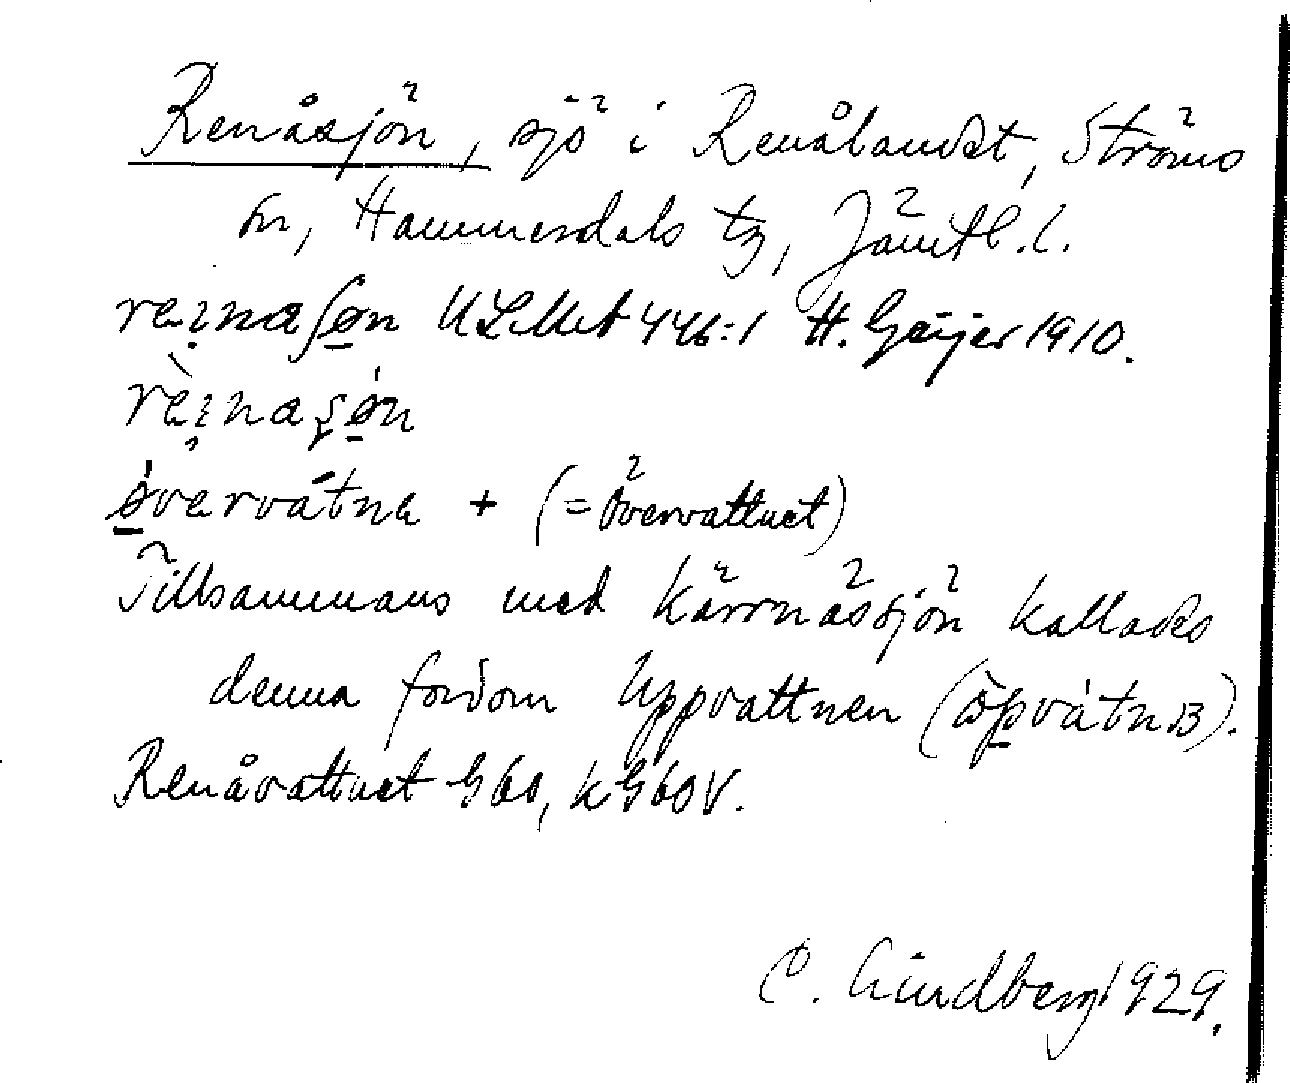 Renåsjön, sjö i Renålandet, Ströms
sn, Hammerdals tg, Jämtl. l.
reinaʃøn ULMA 446:1 H. Geijer 1910.
rèinaʂøn
øvervátne + (= Övervattnet)
Tillsammans med Kärrnässjön kallades
denna fordom Uppvattnen
Renåvattnet G60, kG60V.
C. Lindberg 1929.